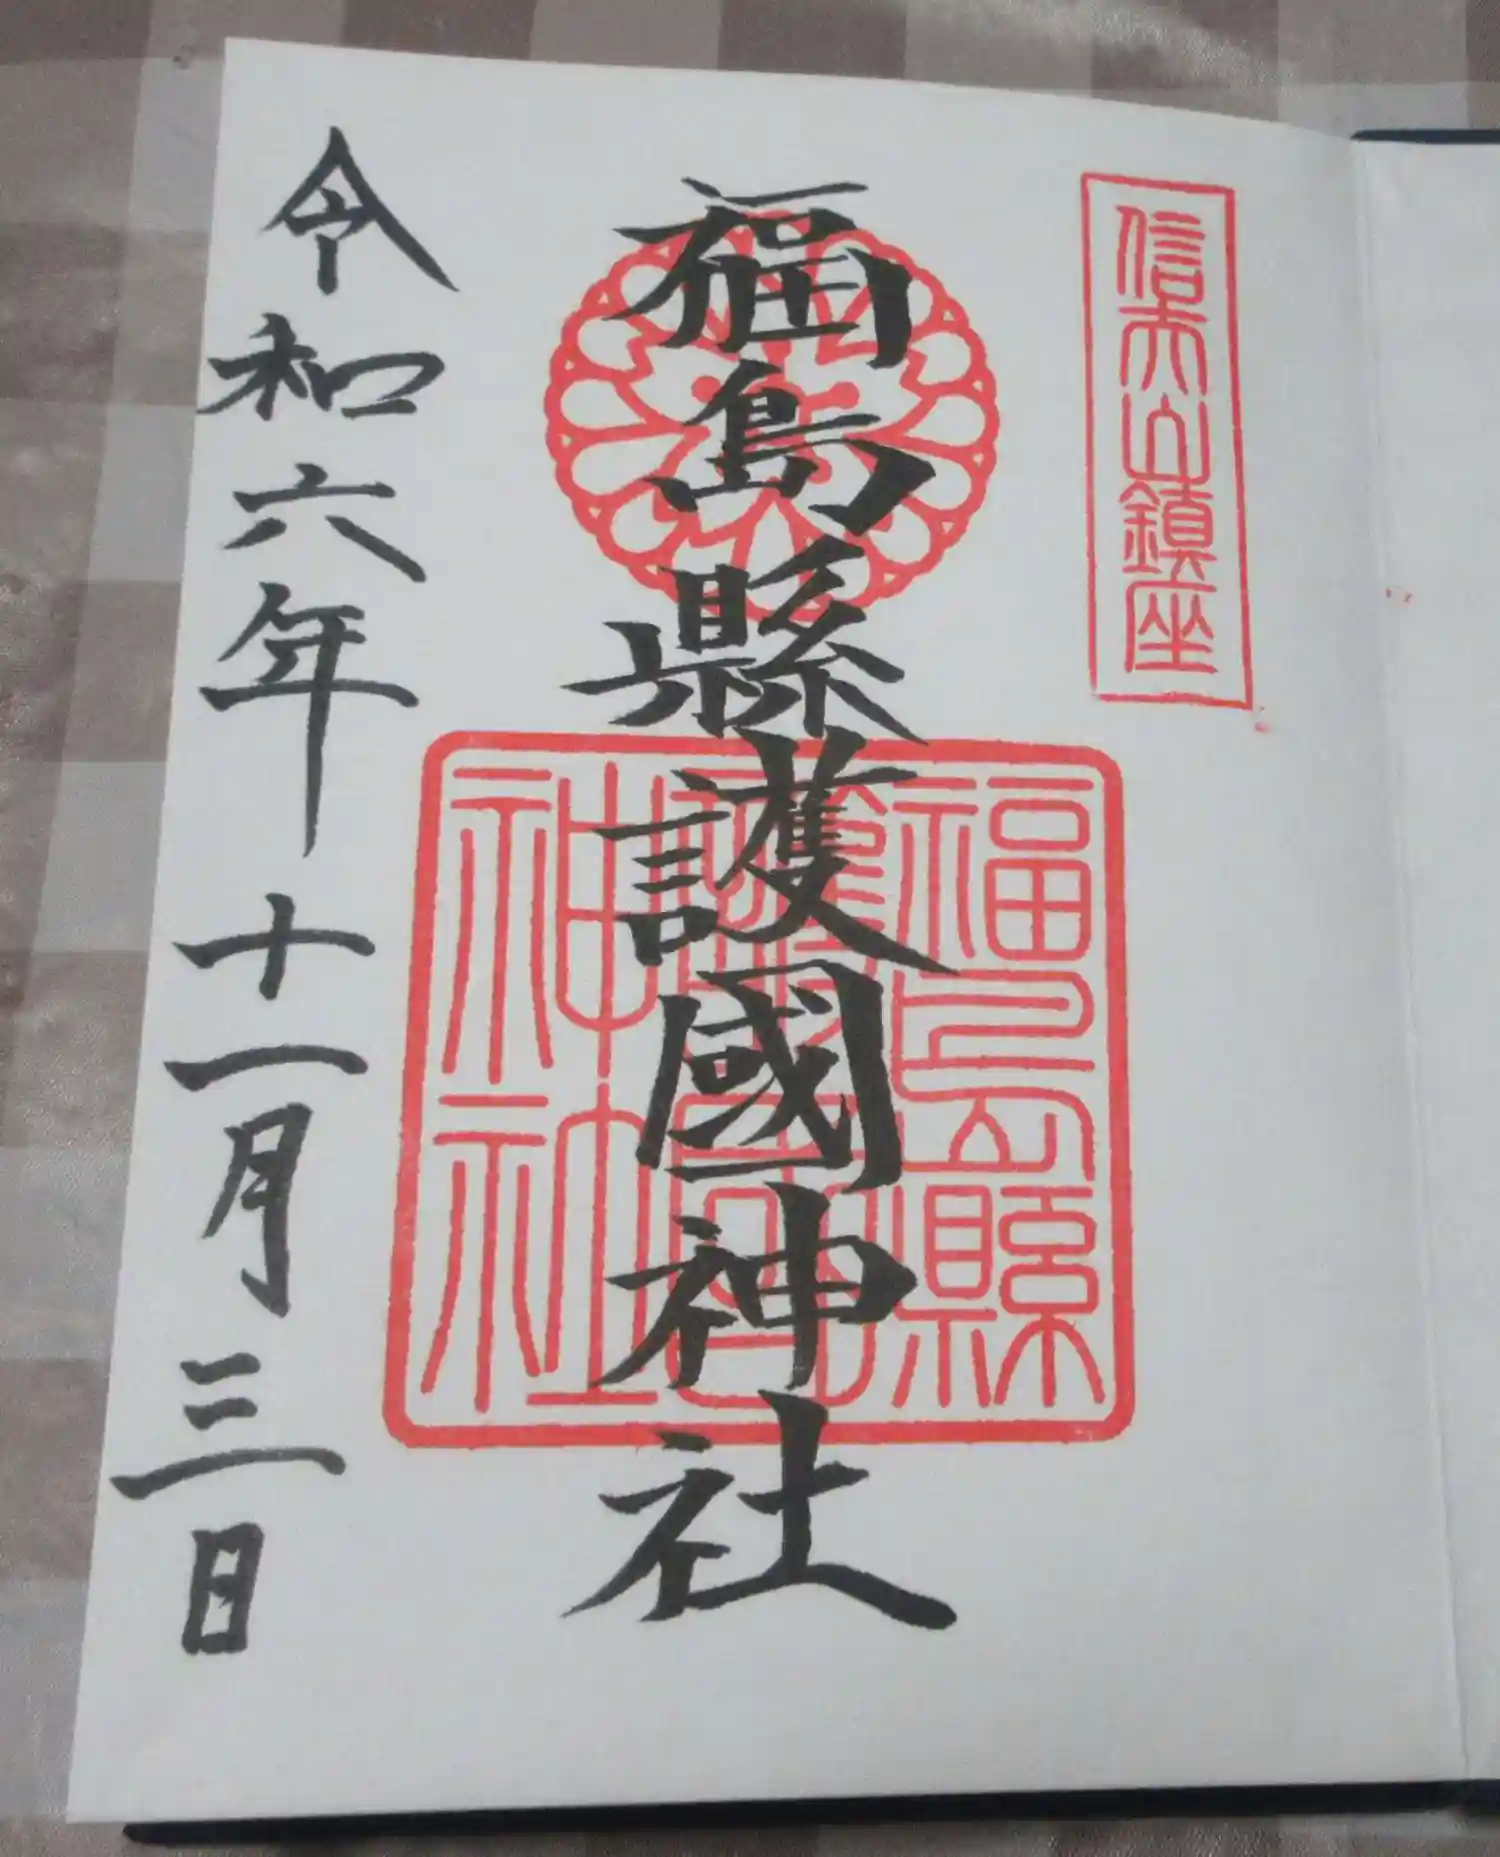 信夫山鎮座
福島縣護國神社
福島縣
護國
神社
令和六年十一月三日